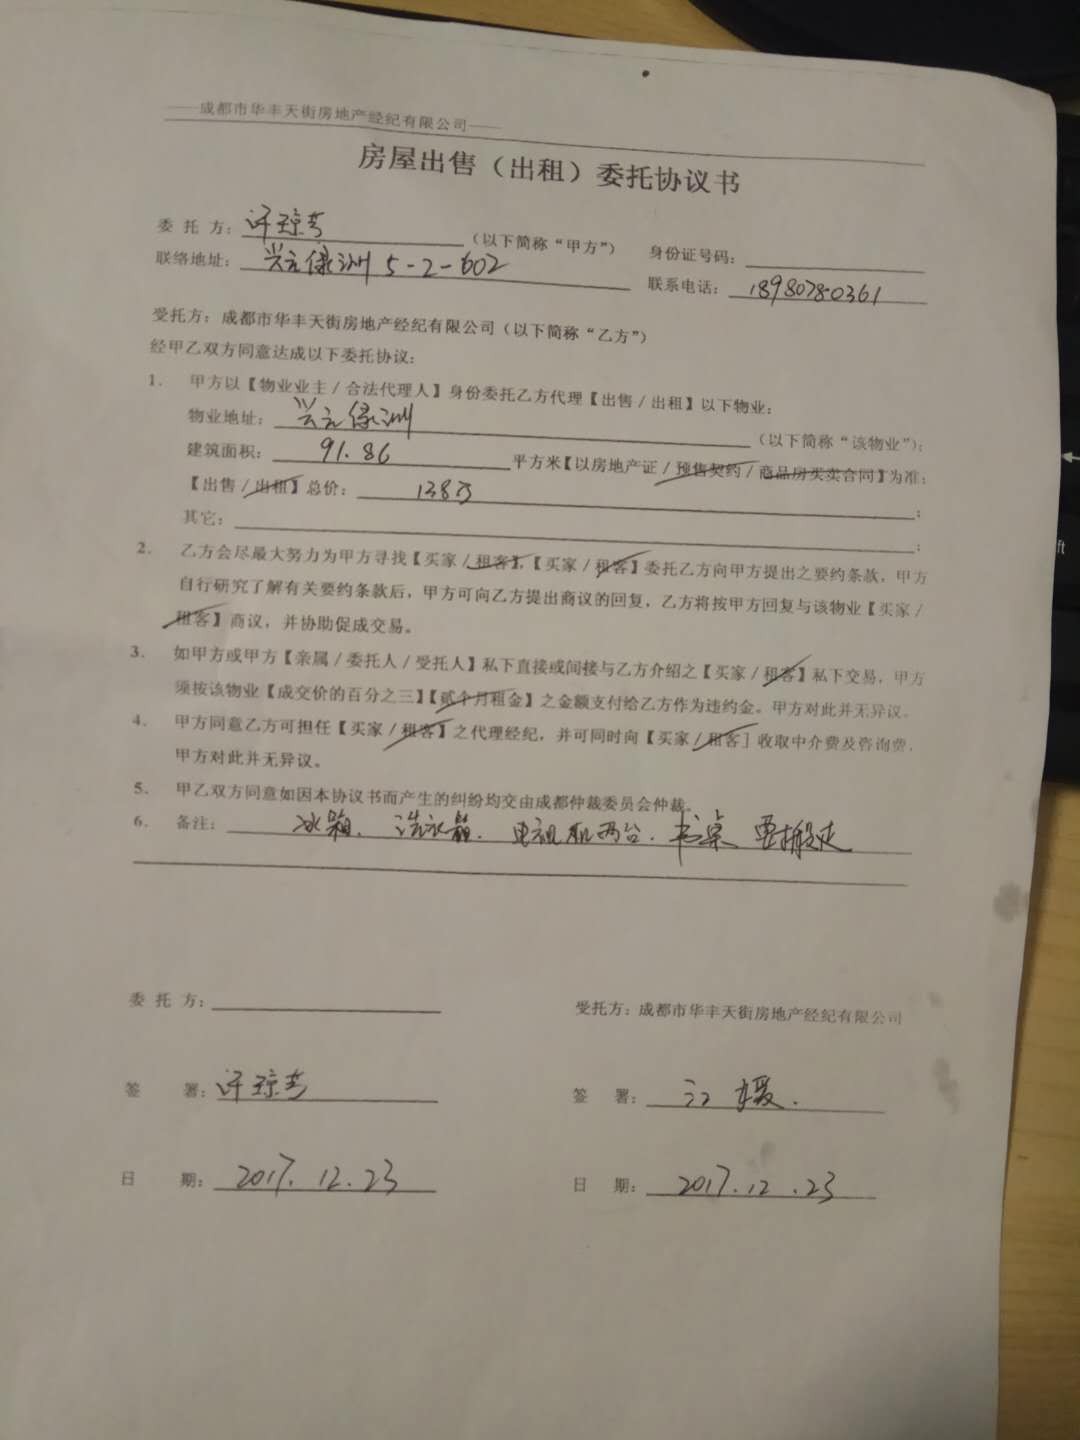 ——成都市华丰天街房地产经纪有限公司——
房屋出售（出租）委托协议书
委 托 方：许琼芳（以下简称“甲方”） 身份证号码：
联络地址：兴元绿洲 5-2-602 联系电话：18980780361
受托方：成都市华丰天街房地产经纪有限公司（以下简称“乙方”）
经甲乙双方同意达成以下委托协议：
1. 甲方以【物业业主/合法代理人】身份委托乙方代理【出售/出租】以下物业：
物业地址：兴元绿洲（以下简称“该物业”）；
建筑面积：91.86 平方米【以房地产证/预售契约/商品房买卖合同】为准；
【出售/出租】总价：138万；
其它：；
2. 乙方会尽最大努力为甲方寻找【买家/租客】，【买家/租客】委托乙方向甲方提出之要约条款，甲方
自行研究了解有关要约条款后，甲方可向乙方提出商议的回复，乙方将按甲方回复与该物业【买家/
租客】商议，并协助促成交易。
3. 如甲方或甲方【亲属/委托人/受托人】私下直接或间接与乙方介绍之【买家/租客】私下交易，甲方
须按该物业【成交价的百分之三】【贰个月租金】之金额支付给乙方作为违约金。甲方对此并无异议。
4. 甲方同意乙方可担任【买家/租客】之代理经纪，并可同时向【买家/租客】收取中介费及咨询费，
甲方对此并无异议。
5. 甲乙双方同意如因本协议书而产生的纠纷均交由成都仲裁委员会仲裁。
6. 备注：冰箱、洗衣机、电视机两台、书桌 要搬走
委 托 方： 受托方：成都市华丰天街房地产经纪有限公司
签 署：许琼芳 签 署：江媛.
日 期：2017.12.23 日 期：2017.12.23
ft